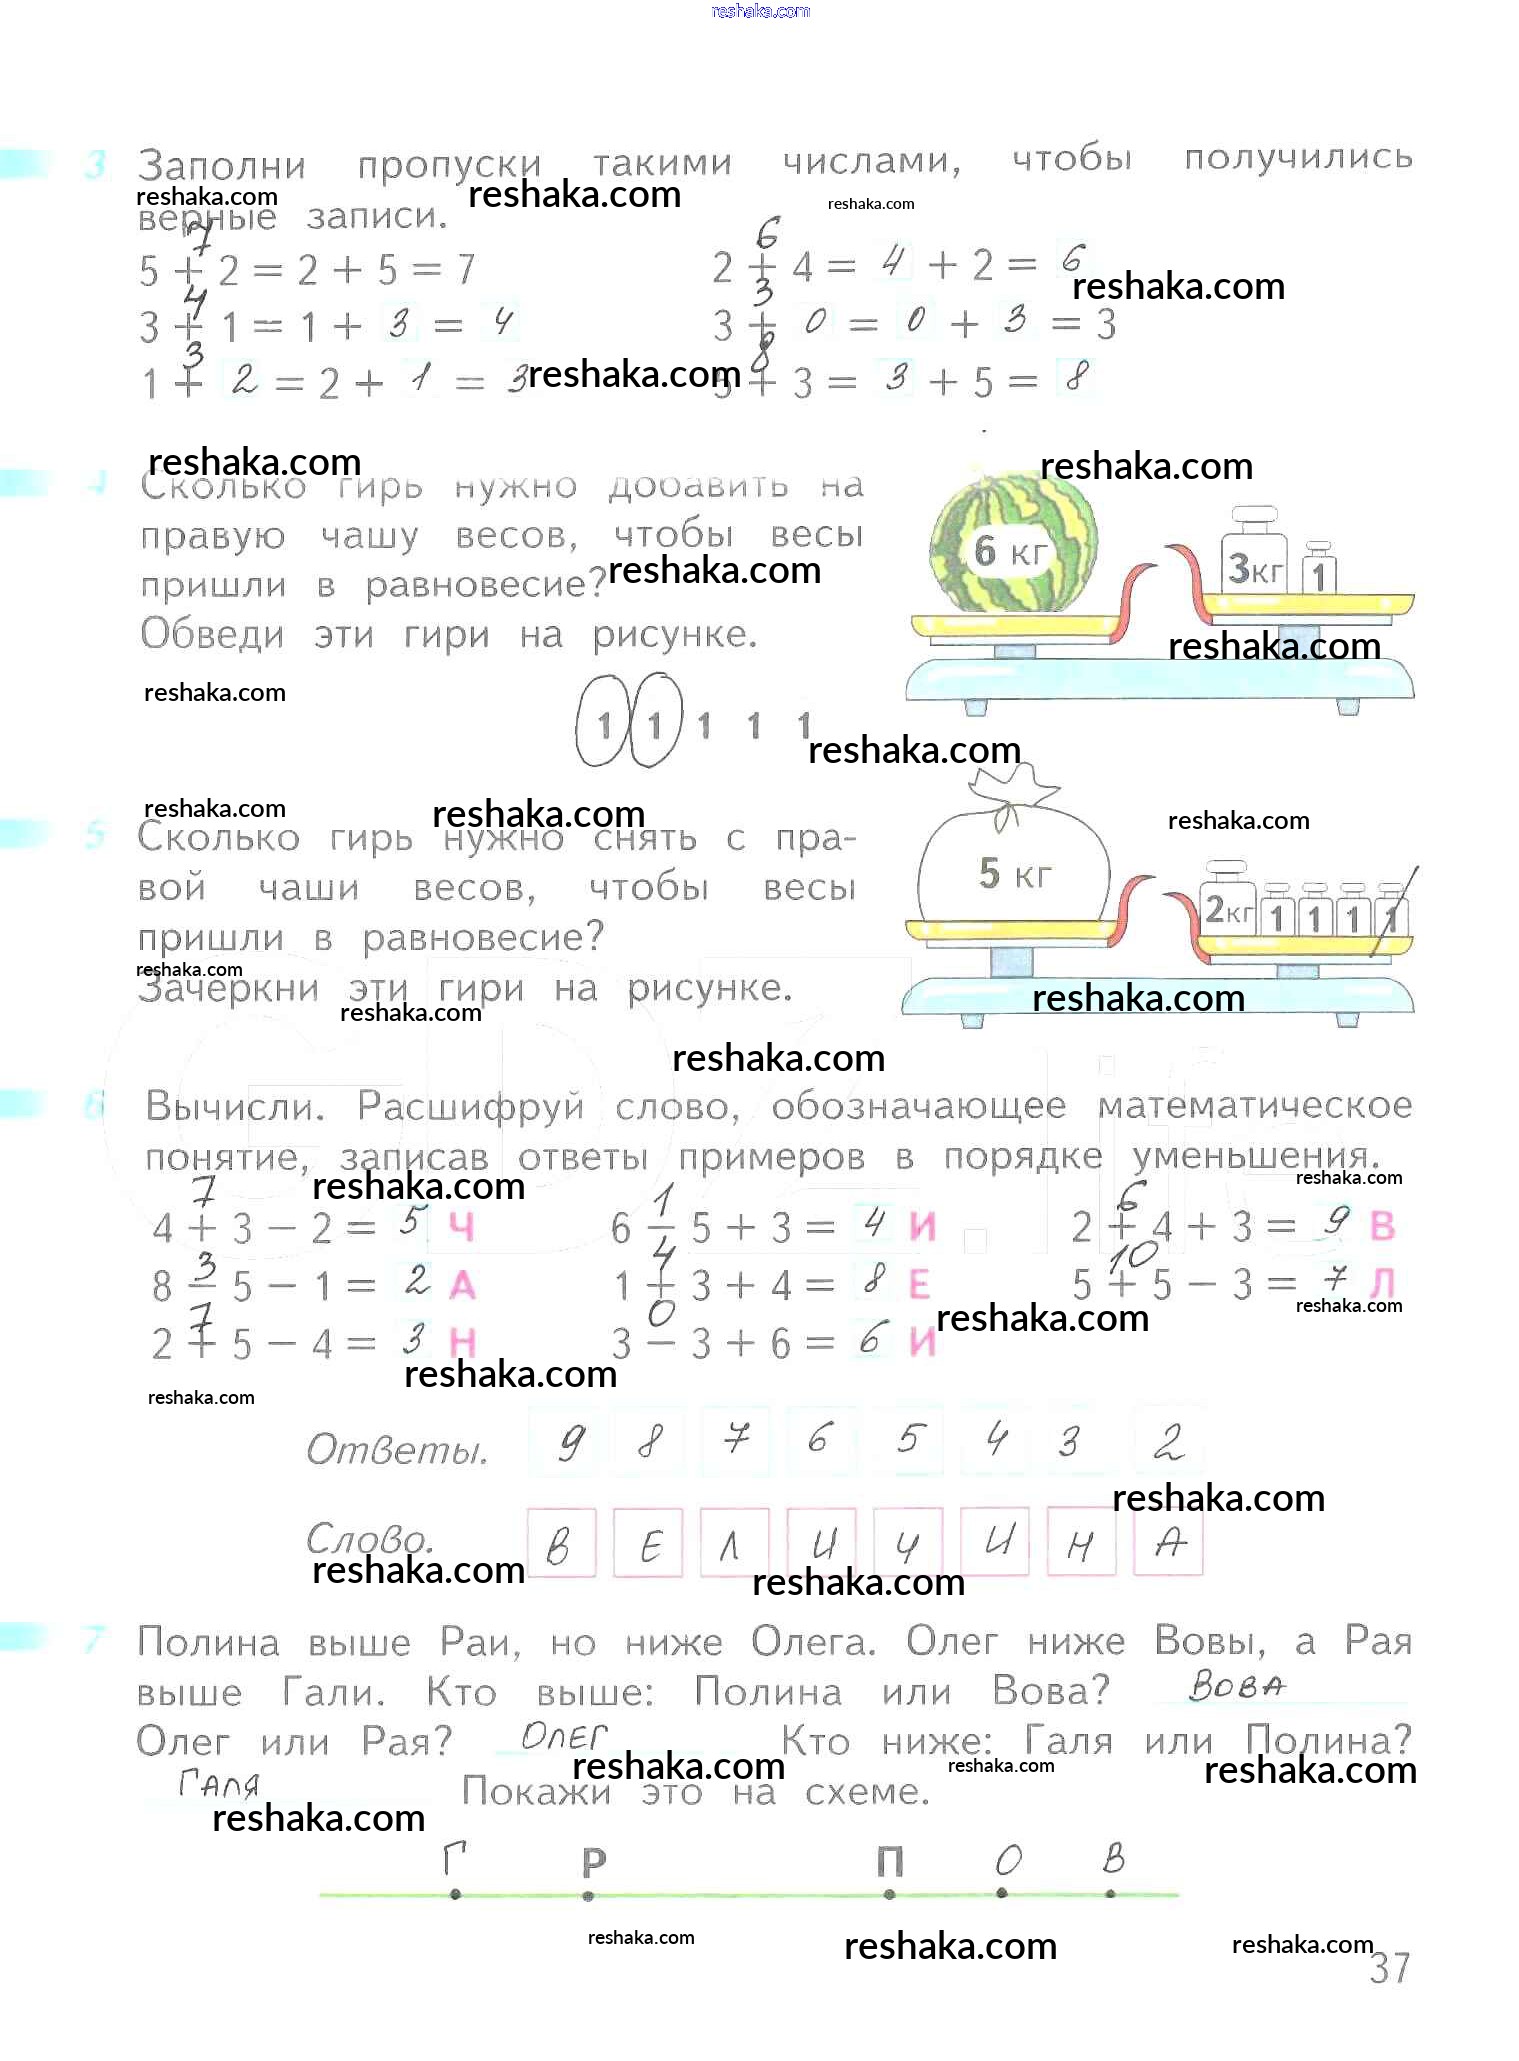 reshaka.com
3 Заполни пропуски такими числами, чтобы получились
reshaka.com reshaka.com reshaka.com
верные записи.
7 6
5 + 2 = 2 + 5 = 7 2 + 4 = 4 + 2 = 6
reshaka.com
4 3
3 + 1 = 1 + 3 = 4 3 + 0 = 0 + 3 = 3
3 8
1 + 2 = 2 + 1 = 3 reshaka.com 5 + 3 = 3 + 5 = 8
reshaka.com reshaka.com
4 Сколько гирь нужно добавить на
правую чашу весов, чтобы весы
пришли в равновесие? reshaka.com
Обведи эти гири на рисунке.
6 кг 3кг 1
reshaka.com
reshaka.com
1 1 1 1 1
reshaka.com
reshaka.com reshaka.com reshaka.com
5 Сколько гирь нужно снять с пра-
вой чаши весов, чтобы весы
пришли в равновесие?
reshaka.com
Зачеркни эти гири на рисунке.
5 кг 2кг 1 1 1 1
reshaka.com reshaka.com
reshaka.com
6 Вычисли. Расшифруй слово, обозначающее математическое
понятие, записав ответы примеров в порядке уменьшения.
reshaka.com reshaka.com
7 1 6
4 + 3 − 2 = 5 Ч 6 − 5 + 3 = 4 И 2 + 4 + 3 = 9 В
3 4 10
8 − 5 − 1 = 2 А 1 + 3 + 4 = 8 Е 5 + 5 − 3 = 7 Л
reshaka.com reshaka.com
7 0
2 + 5 − 4 = 3 Н 3 − 3 + 6 = 6 И
reshaka.com
reshaka.com
Ответы. 9 8 7 6 5 4 3 2
reshaka.com
Слово. В Е Л И Ч И Н А
reshaka.com reshaka.com
7 Полина выше Раи, но ниже Олега. Олег ниже Вовы, а Рая
выше Гали. Кто выше: Полина или Вова? Вова
Олег или Рая? Олег Кто ниже: Галя или Полина?
reshaka.com reshaka.com reshaka.com
Галя Покажи это на схеме.
reshaka.com
Г Р П О В
reshaka.com reshaka.com reshaka.com
37